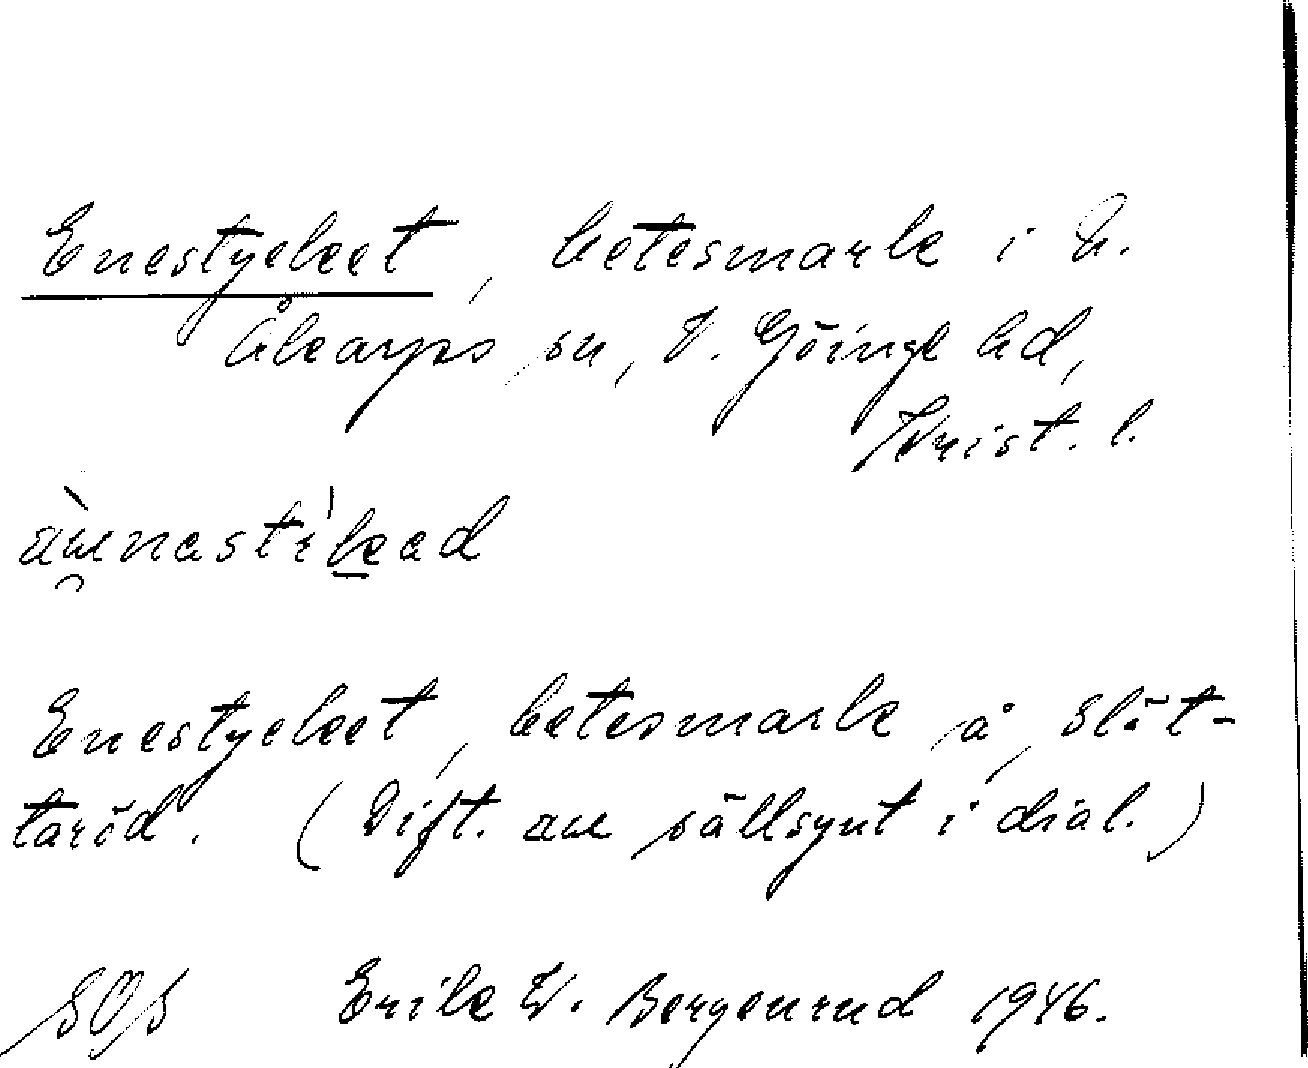 Enestycket, betesmark i N.
Åkarps sn, V. Göinge hd,
Krist. l.
Enestycket, betesmark å Slät-
taröd. (Dift. au sällsynt i dial.)
Erik W. Bergenrud 1946.